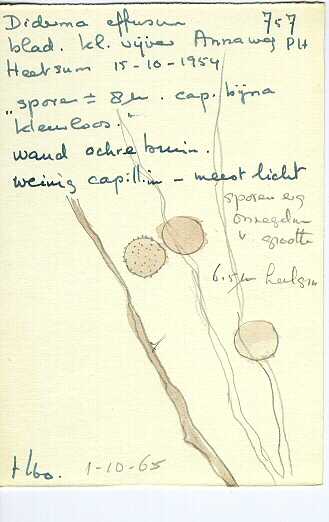 Diderma effusum 757
blad. kl. vijver Annaweg PH
Heelsum 15-10-1954
"sporen ± 8 µ. cap. bijna
kleurloos."
wand ochrebruin.
weinig capill. – meest licht
sporen erg
onregelm
v. grootte
6.5 µ
1-10-65